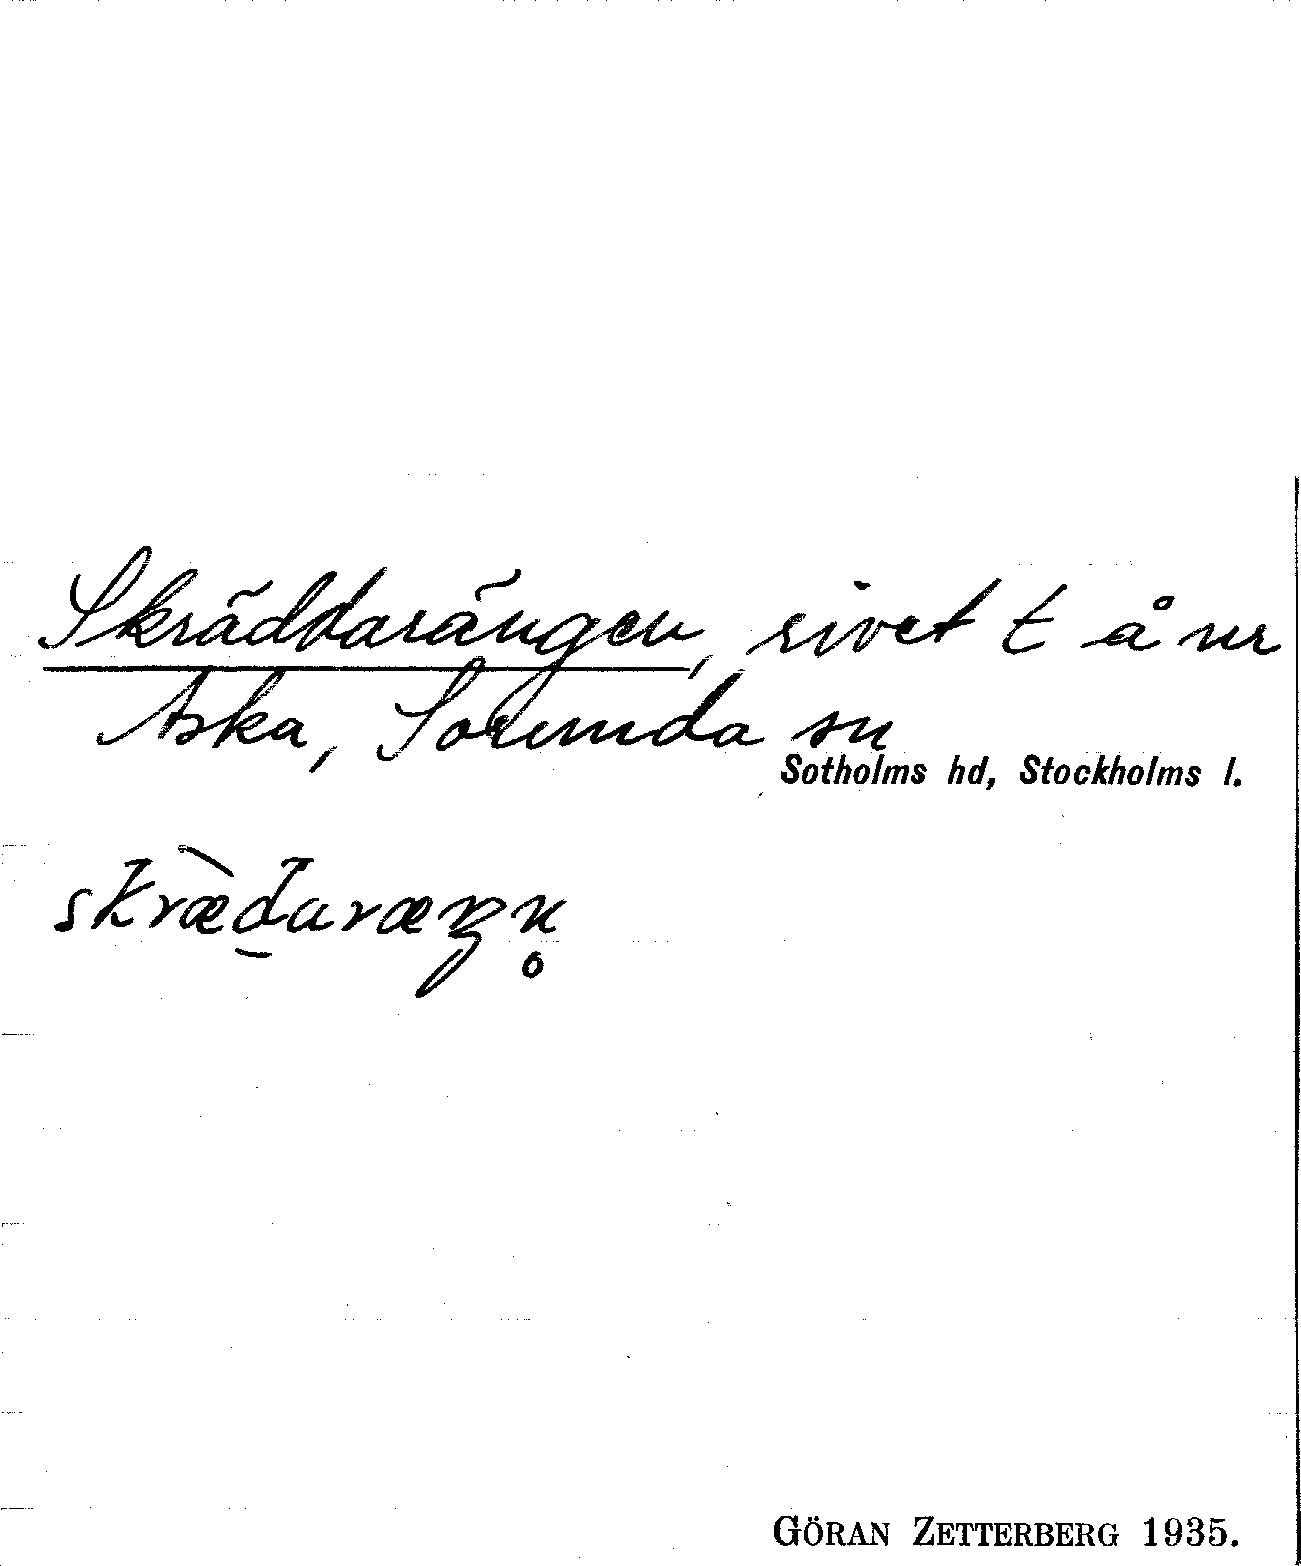 Skräddarängen, rivet t å nr
Aska, Sorunda sn
Sotholms hd, Stockholms l.
skræ̀d̠aræŋn̥
GÖRAN ZETTERBERG 1935.